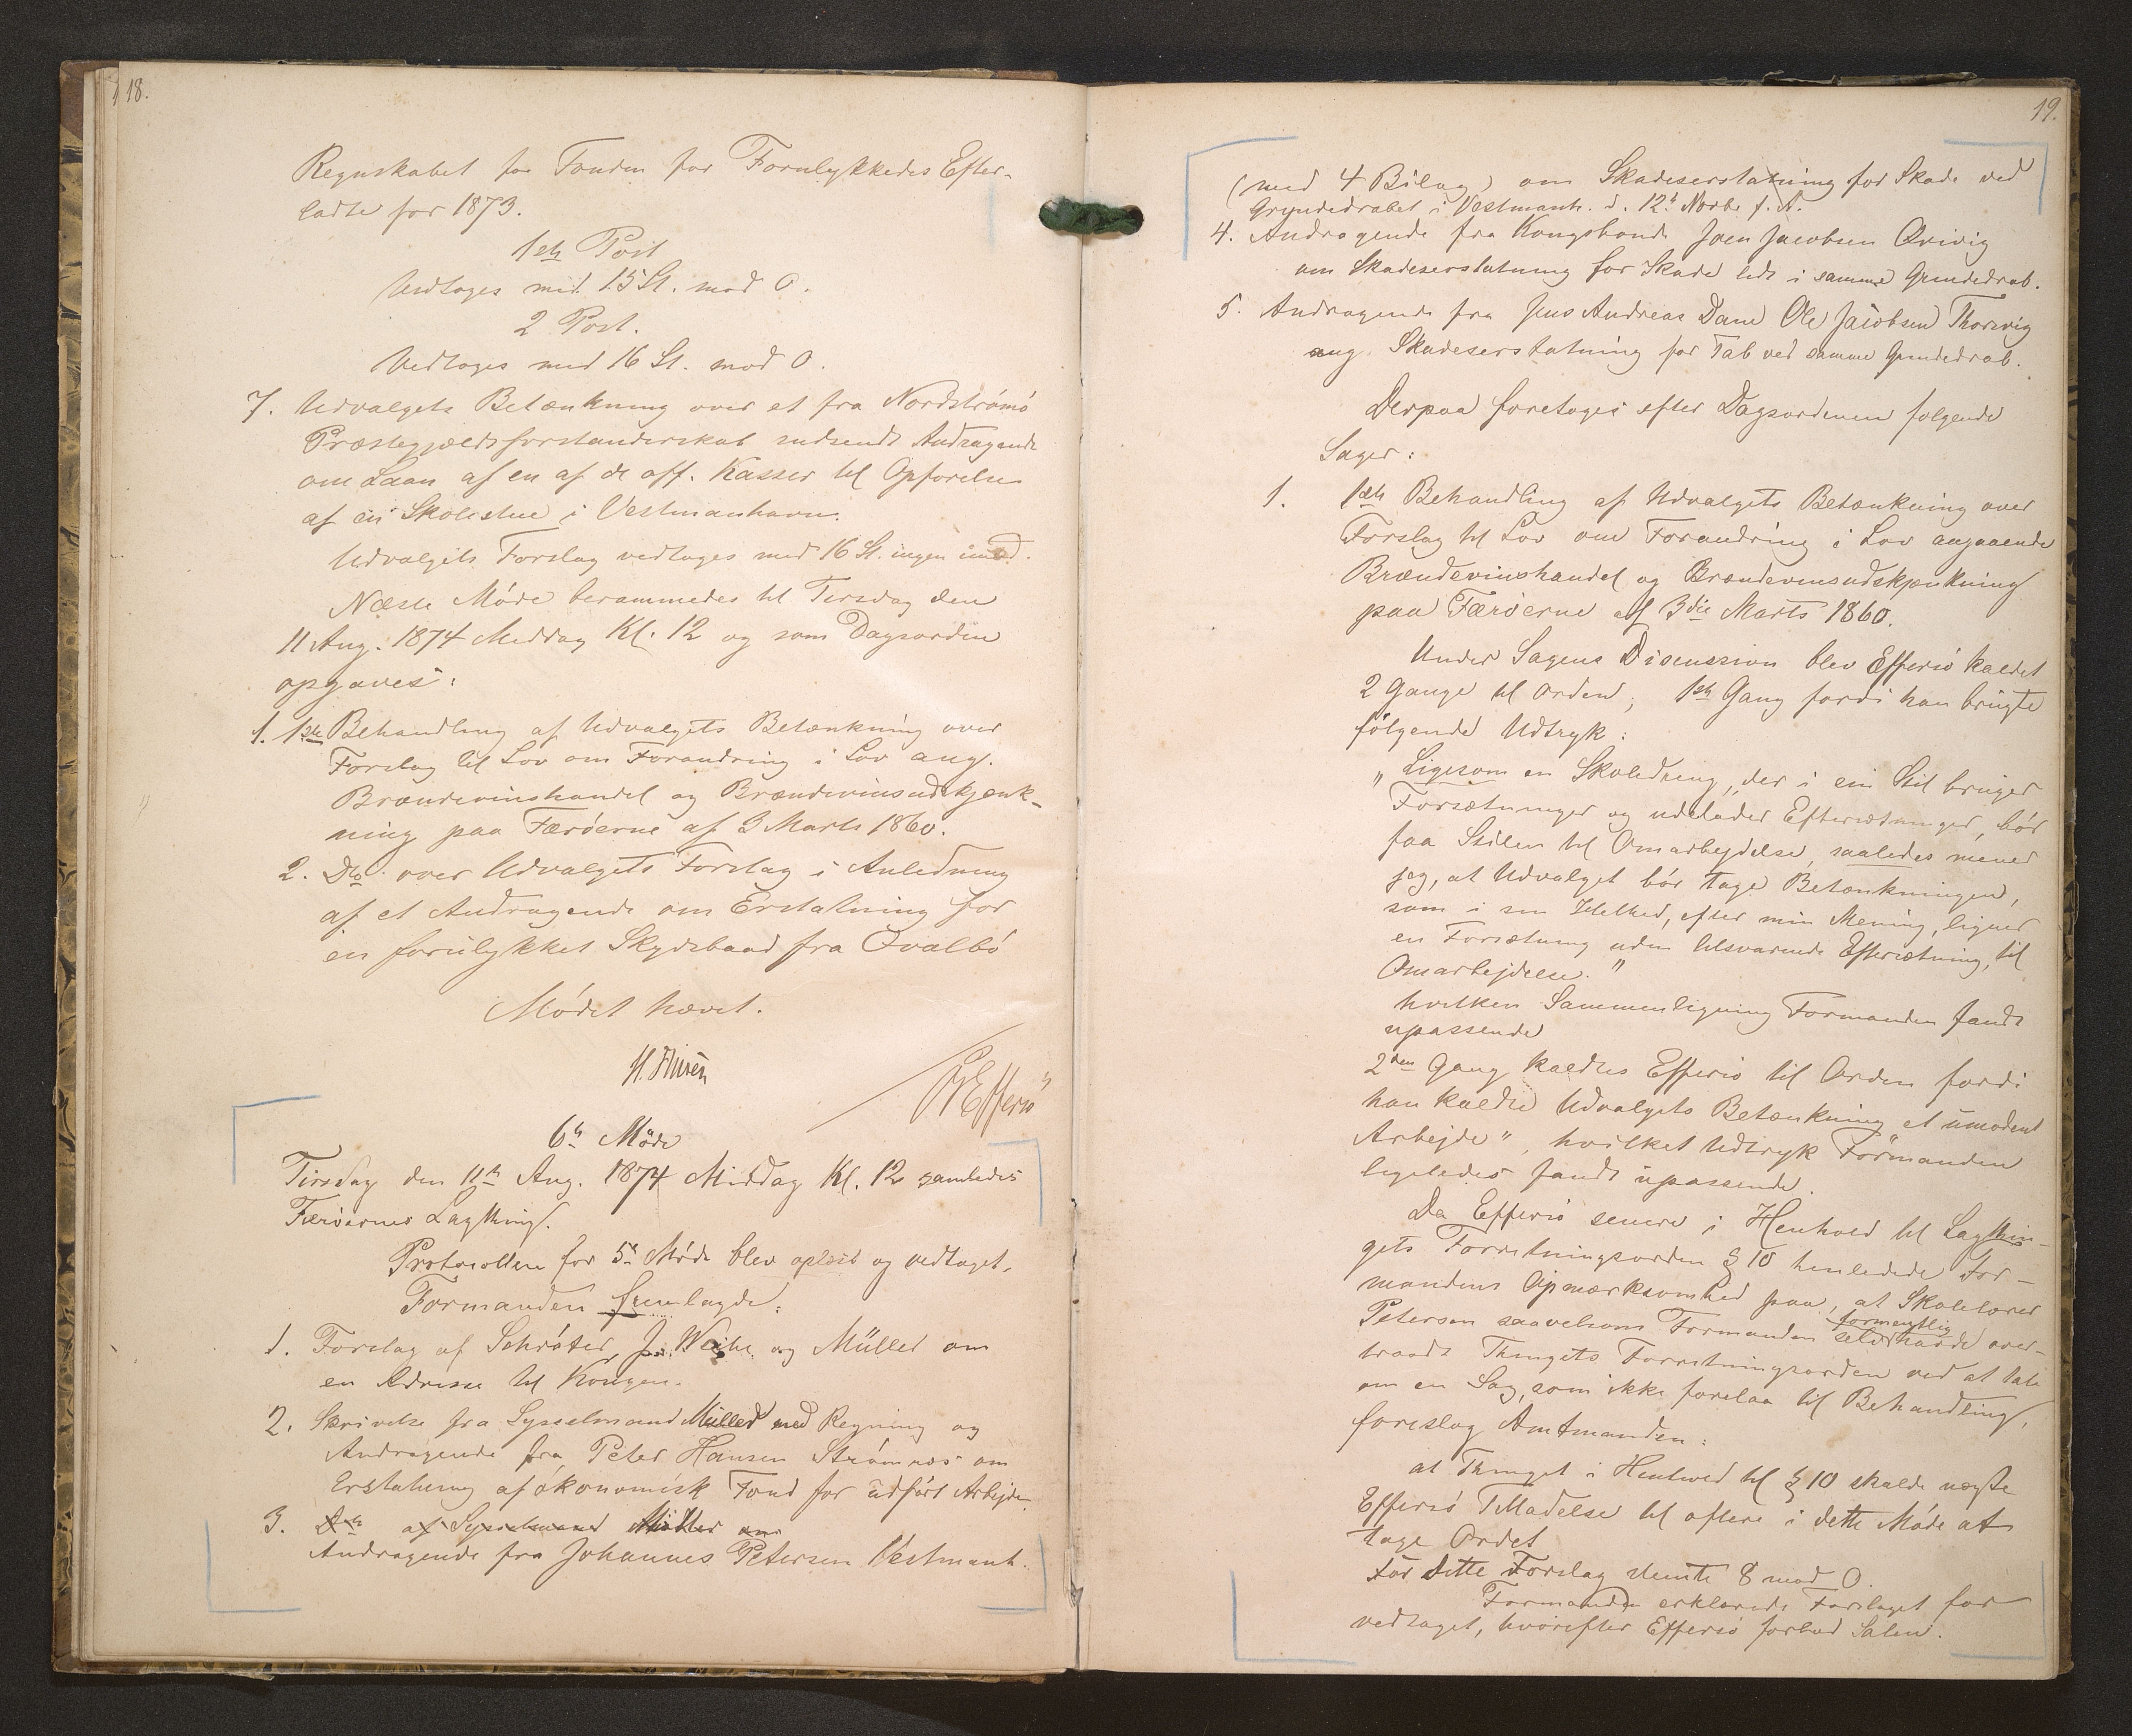 18.
Regnskabet for Fonden for Forulykkedes Efter-
ladte for 1873.
1ste Post
Vedtoges med 15 St. mod 0.
2 Post.
Vedtoges med 16 St. mod 0.
7. Udvalgets Betænkning over et fra Nordströmö
Præstegjældsforstanderskab indsendt Andragende
om Laan af en af de off. Kasser til Opförelse
af en Skolestue i Vestmanhavn.
Udvalgets Forslag vedtoges med 16 St. ingen imod.
Næste Möde berammedes til Tirsdag den
11 Aug. 1874 Middag Kl. 12 og som Dagsorden
opgaves:
1. 1ste Behandling af Udvalgets Betænkning over
Forslag til Lov om Forandring i Lov ang.
Brændevinshandel og Brændevinsudskjænk-
ning paa Færöerne af 3 Marts 1860.
2. Do over Udvalgets Forslag i Anledning
af et Andragende om Erstatning for
en forulykket Skydsbaad fra Qvalbö
Mödet hævet.
H. Finsen
Effersö
6te Möde
Tirsdag den 11te Aug. 1874 Middag Kl. 12 samledes
Færöernes Lagthing.
Protocollen for 5te Möde blev oplæst og vedtaget.
Formanden fremlagde:
1. Forslag af Schröter, J. Weihe og Müller om
en Adresse til Kongen.
2. Skrivelse fra Sysselmand Müller med Regning og
Andragende fra Peter Hansen Strömnæs om
Erstatning af ökonomisk Fond for udfört Arbejde.
3. Do af Sysselmand Müller om
Andragende fra Johannes Petersen Vestmanh.
19.
(med 4 Bilag) om Skadeserstatning for Skade ved
Grindedrabet i Vestmanh. d. 12te Novbr f. A.
4. Andragende fra Kongsbonde Joen Jacobsen Qvivig
om Skadeserstatning for Skade lidt i samme Grindedrab.
5. Andragende fra Jens Andreas Dam Ole Jacobsen Thorsvig
ang. Skadeserstatning for Tab ved samme Grindedrab.
Derpaa foretoges efter Dagsordenen følgende
Sager:
1. 1ste Behandling af Udvalgets Betænkning over
Forslag til Lov om Forandring i Lov angaaende
Brændevinshandel og Brændevinsudskjænkning
paa Færöerne af 3die Marts 1860.
Under Sagens Discussion blev Effersö kaldet
2 Gange til Orden; 1ste Gang fordi han brugte
følgende Udtryk:
"Ligesom en Skoledreng, der i en Stil bruger
Forsætninger og udelader Eftersætninger, bör
faa Stilen til Omarbejdelse, saaledes mener
jeg, at Udvalget bör tage Betænkningen,
som i sin Helhed, efter min Mening, ligner
en Forsætning uden tilsvarende Eftersætning, til
Omarbejdelse."
hvilken Sammenligning Formanden fandt
upassende
2den Gang kaldtes Effersö til Orden fordi
han kaldte Udvalgets Betænkning et umodent
Arbejde", hvilket Udtryk Formanden
ligeledes fandt upassende.
Da Effersö senere i Henhold til Lagthin-
gets Forretningsorden § 10 henledede For-
mandens Opmærksomhed paa, at Skolelærer
Petersen saavelsom Formanden formentlig selv havde over-
traadt Thingets Forretningsorden ved at tale
om en Sag, som ikke forelaa til Behandling,
foreslog Amtmanden:
at Thinget i Henhold til § 10 skulde nægte
Effersö Tilladelse til oftere i dette Möde at
tage Ordet
For dette Forslag stemte 8 mod 0.
Formanden erklærede Forslaget for
vedtaget, hvorefter Effersö forlod Salen.